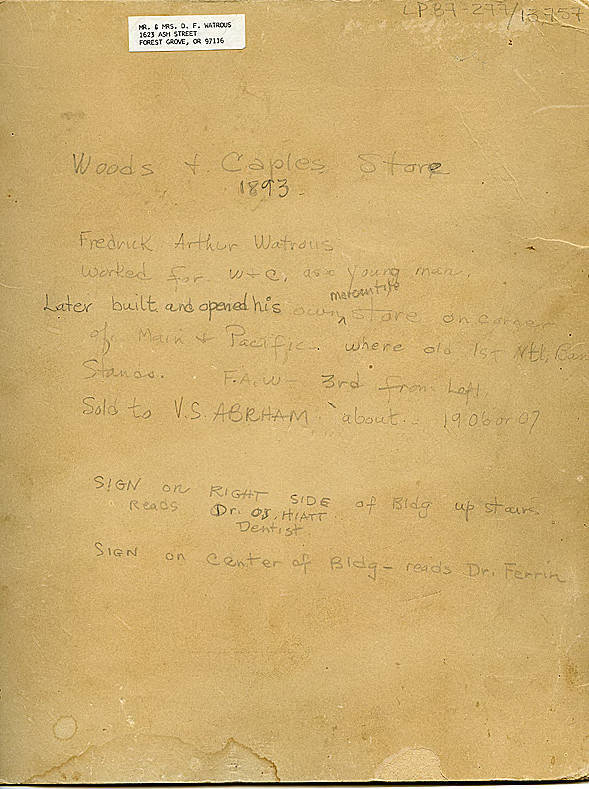 LP87-277/13757
MR. & MRS. D. F. WATROUS
1623 ASH STREET
FOREST GROVE, OR 97116
Woods + Caples Store
1893
Fredrick Arthur Watrous
worked for W+C, as a young man.
Later built and opened his own mercantile store on corner
of Main + Pacific. where old 1st Ntl. Ban
Stands. F.A.W - 3rd from Left.
Sold to V.S. ABRHAM about 1906 or 07
SIGN on RIGHT SIDE of Bldg up stairs
Reads Dr. HIATT
Dentist
SIGN on center of Bldg - reads Dr. Ferrin